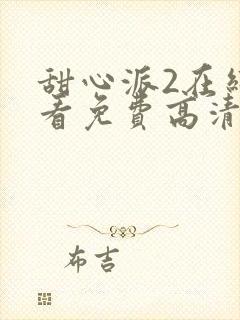 甜心派2在線
看免費高清
布吉